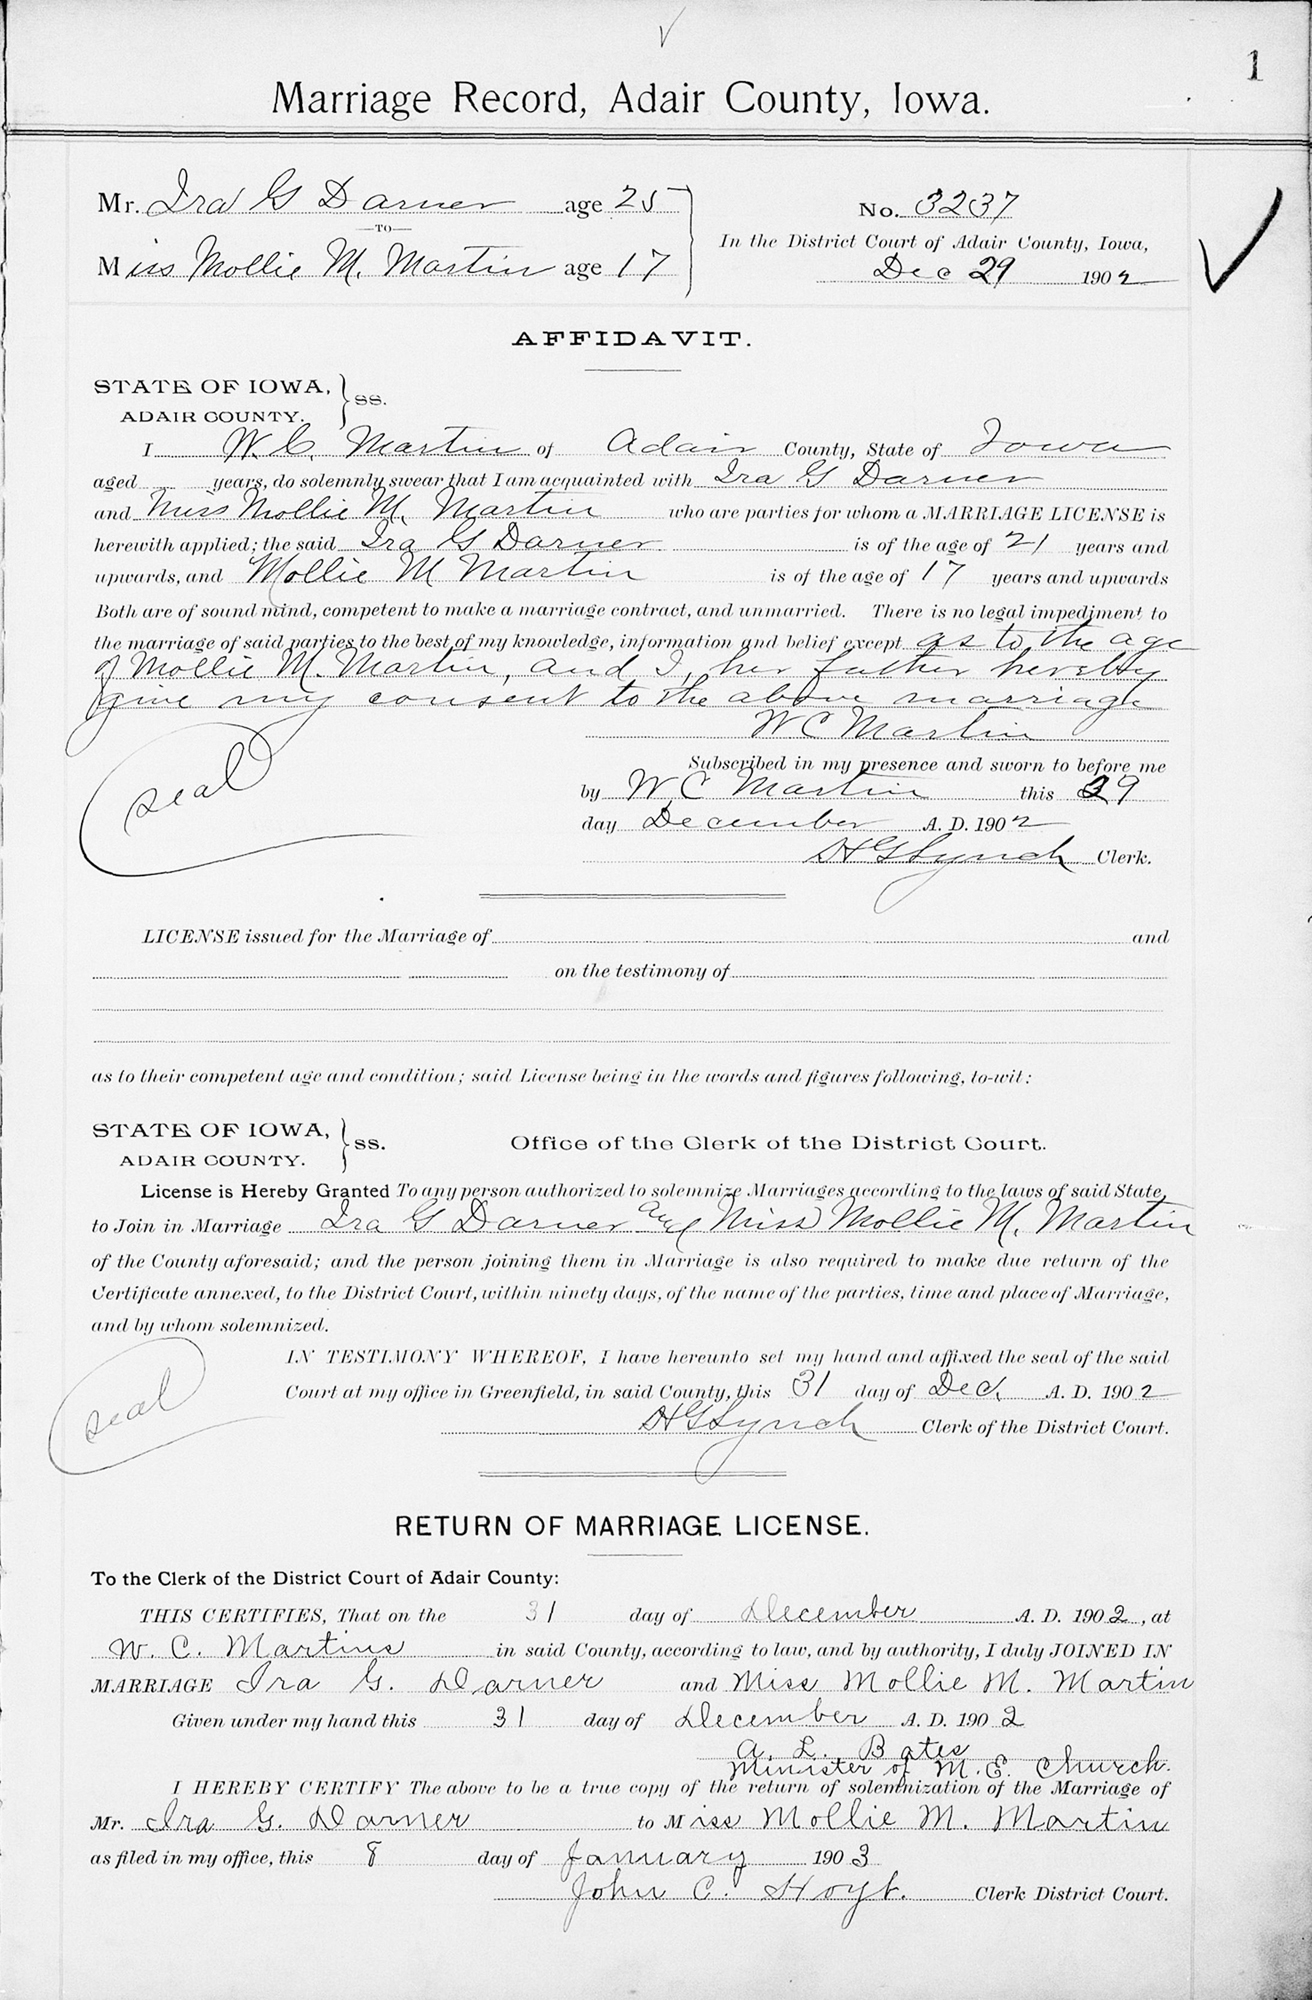 1
Marriage Record, Adair County, Iowa.
Mr. Ira G Darner age 25
TO
Miss Mollie M. Martin age 17
No. 3237
In the District Court of Adair County, Iowa,
Dec 29 1902
AFFIDAVIT.
STATE OF IOWA,
ADAIR COUNTY. ss.
I W. C. Martin of Adair County, State of Iowa
aged years, do solemnly swear that I am acquainted with Ira G Darner
and Miss Mollie M. Martin who are parties for whom a MARRIAGE LICENSE is
herewith applied; the said Ira G Darner is of the age of 21 years and
upwards, and Mollie M Martin is of the age of 17 years and upwards
Both are of sound mind, competent to make a marriage contract, and unmarried. There is no legal impediment to
the marriage of said parties to the best of my knowledge, information and belief except as to the age
of Mollie M. Martin, and I, her father hereby
give my consent to the above marriage
W C Martin
seal
Subscribed in my presence and sworn to before me
by W C Martin this 29
day December A. D. 1902
H G Lynch Clerk.
LICENSE issued for the Marriage of and
on the testimony of
as to their competent age and condition; said License being in the words and figures following, to-wit:
STATE OF IOWA,
ADAIR COUNTY. ss.
Office of the Clerk of the District Court.
License is Hereby Granted To any person authorized to solemnize Marriages according to the laws of said State,
to Join in Marriage Ira G Darner and Miss Mollie M. Martin
of the County aforesaid; and the person joining them in Marriage is also required to make due return of the
Certificate annexed, to the District Court, within ninety days, of the name of the parties, time and place of Marriage,
and by whom solemnized.
IN TESTIMONY WHEREOF, I have hereunto set my hand and affixed the seal of the said
Court at my office in Greenfield, in said County, this 31 day of Dec. A. D. 1902
seal
H G Lynch Clerk of the District Court.
RETURN OF MARRIAGE LICENSE.
To the Clerk of the District Court of Adair County:
THIS CERTIFIES, That on the 31 day of December A. D. 1902, at
W. C. Martins in said County, according to law, and by authority, I duly JOINED IN
MARRIAGE Ira G. Darner and Miss Mollie M. Martin
Given under my hand this 31 day of December A. D. 1902
A. L. Bates
Minister of M. E. Church.
I HEREBY CERTIFY The above to be a true copy of the return of solemnization of the Marriage of
Mr. Ira G. Darner to Miss Mollie M. Martin
as filed in my office, this 8 day of January 1903
John C. Hoyt. Clerk District Court.